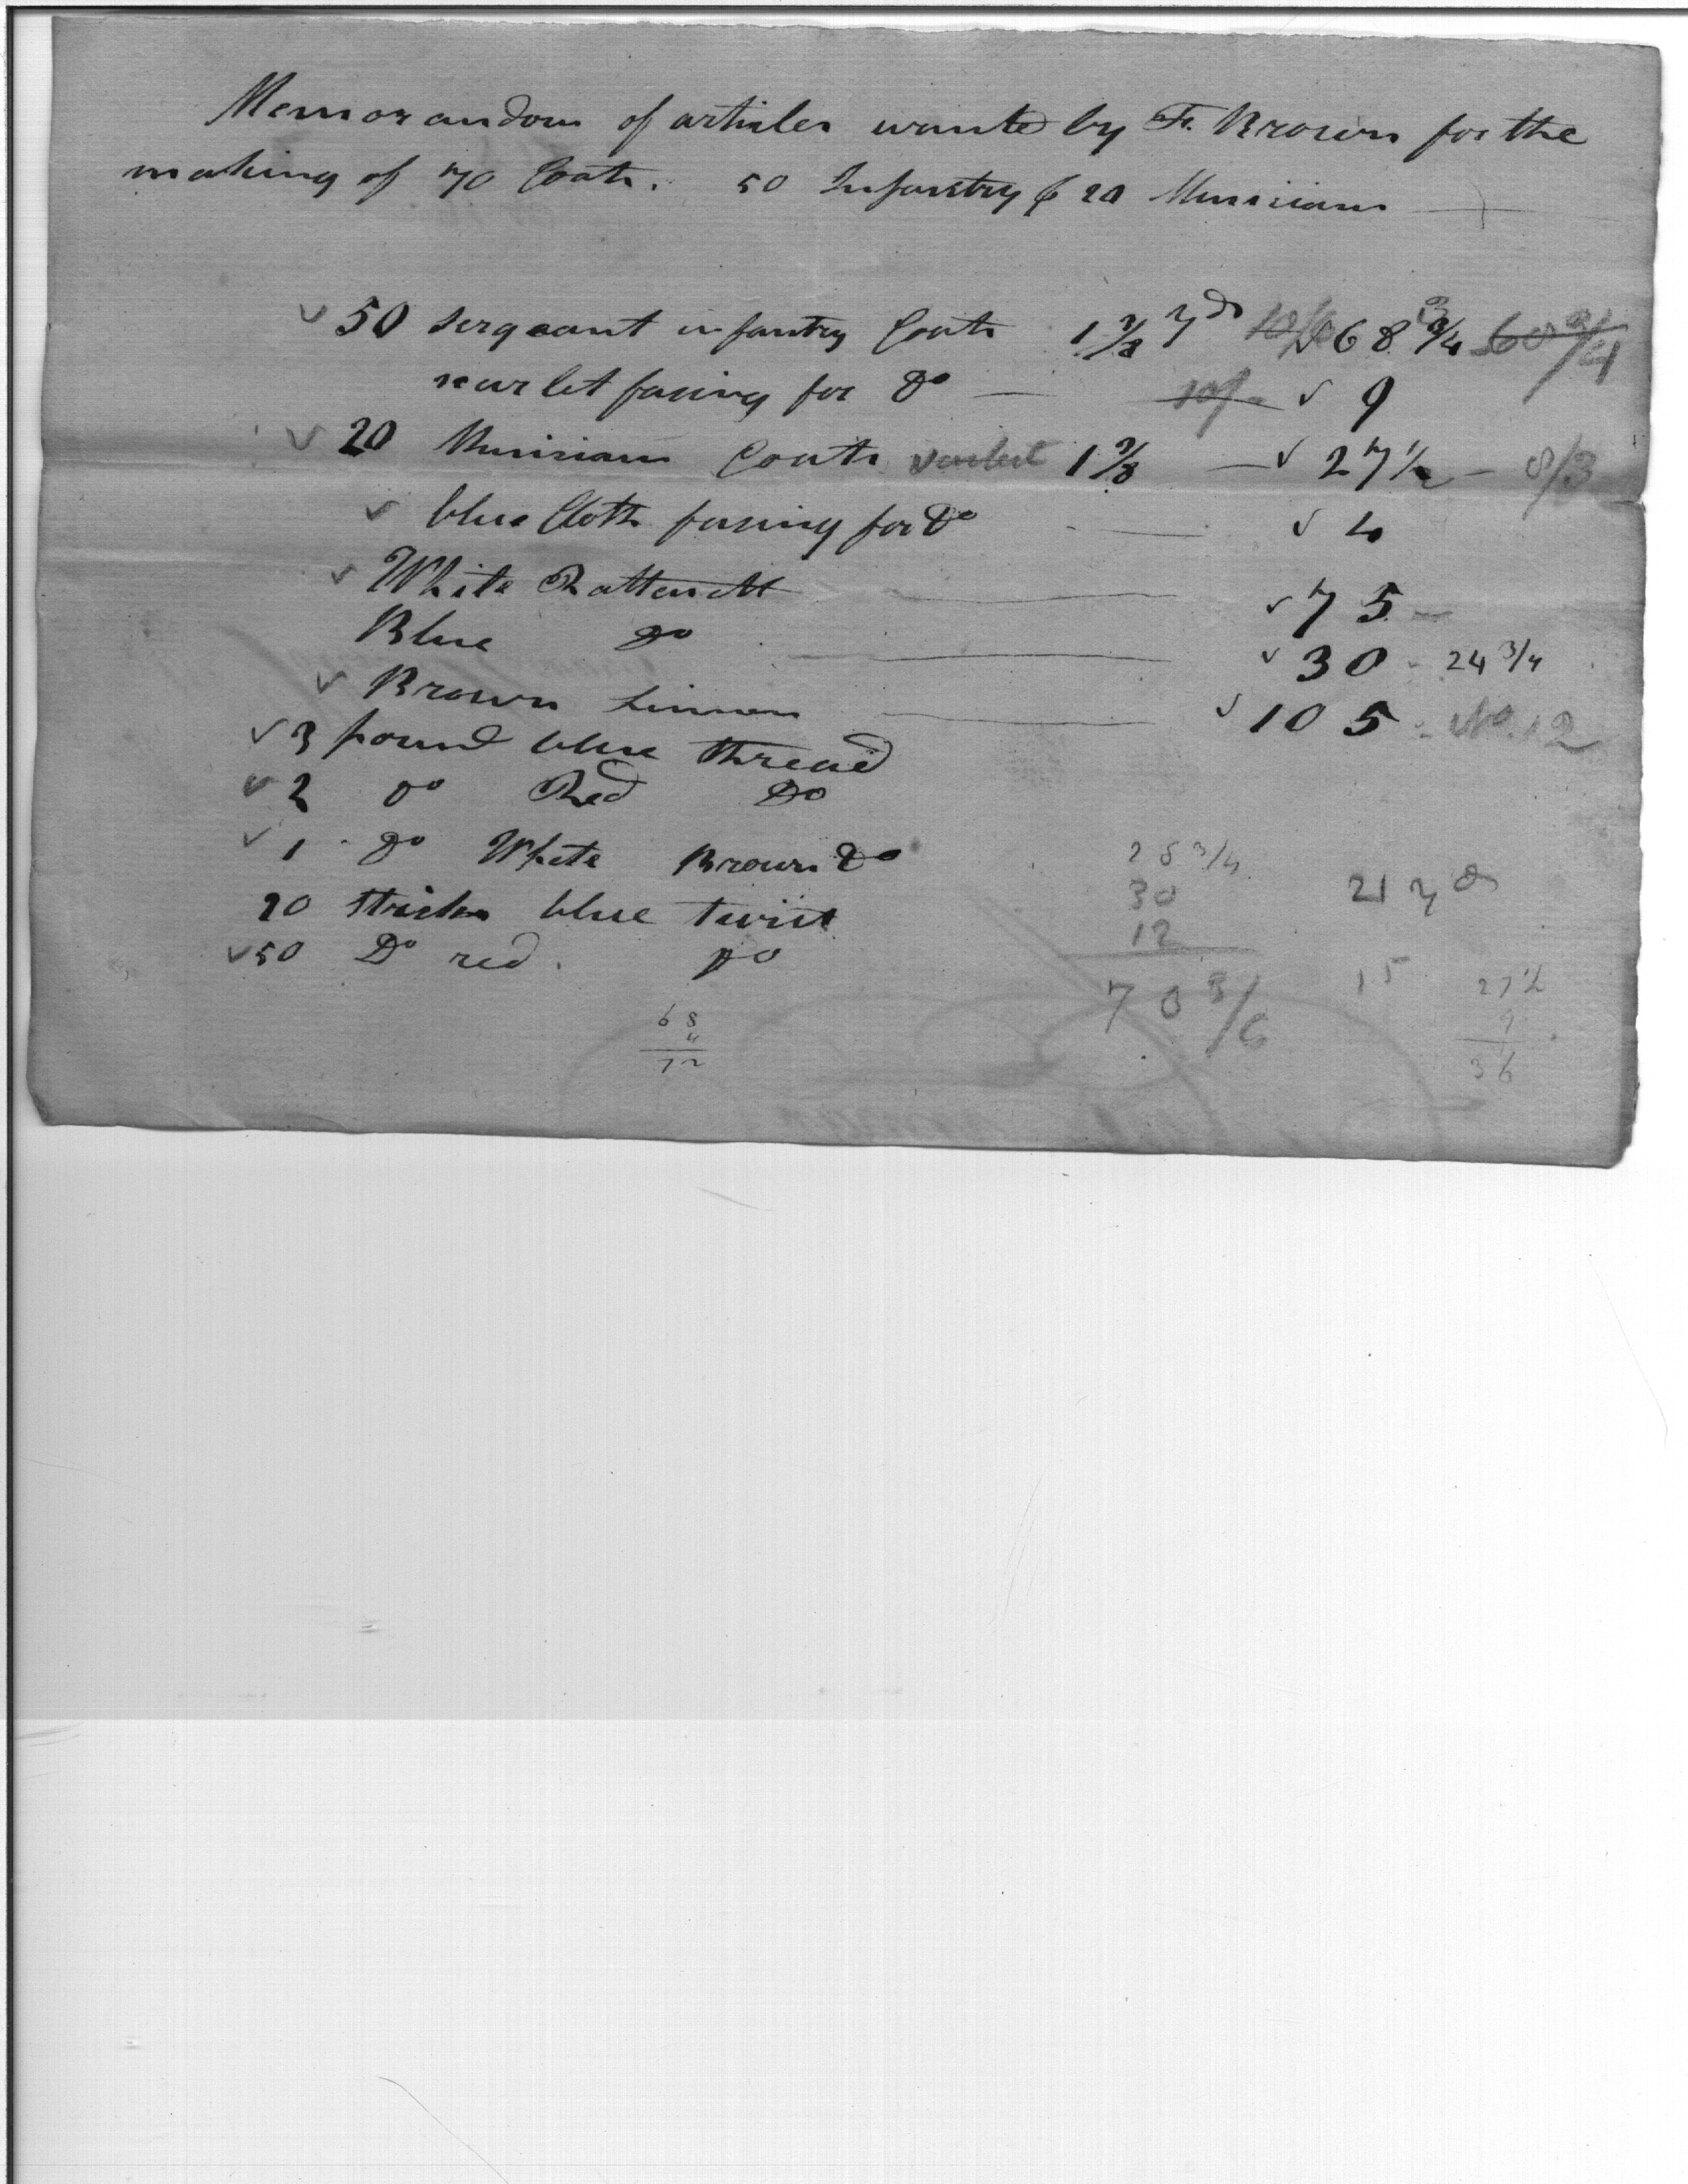 Memorandom of articles wanted by Fr. Brown for the
making of 70 Coats. 50 Infantry & 20 Musicians
✓ 50 sergeant infantry Coats 1 3/8 yds 10/6 ✓ 68 3/4 60 3/4
scarlet facing for Do — 10/- ✓ 9
✓ 20 Musicians Coats scarlet 1 3/8 — ✓ 27 1/2 — 8/3
✓ blue Cloth facing for Do — ✓ 4
✓ White Rattenett — ✓ 75 —
Blue Do — ✓ 30 - 24 3/4
✓ Brown Linnen — ✓ 105 - No. 12
✓ 3 pound blue thread
✓ 2 Do Red Do
✓ 1 - Do White Brown Do
20 sticks blue twist
✓ 50 Do red. Do
28 3/4
30
12
70 3/6
21 yds
15
27 1/2
9
36
68
4
72